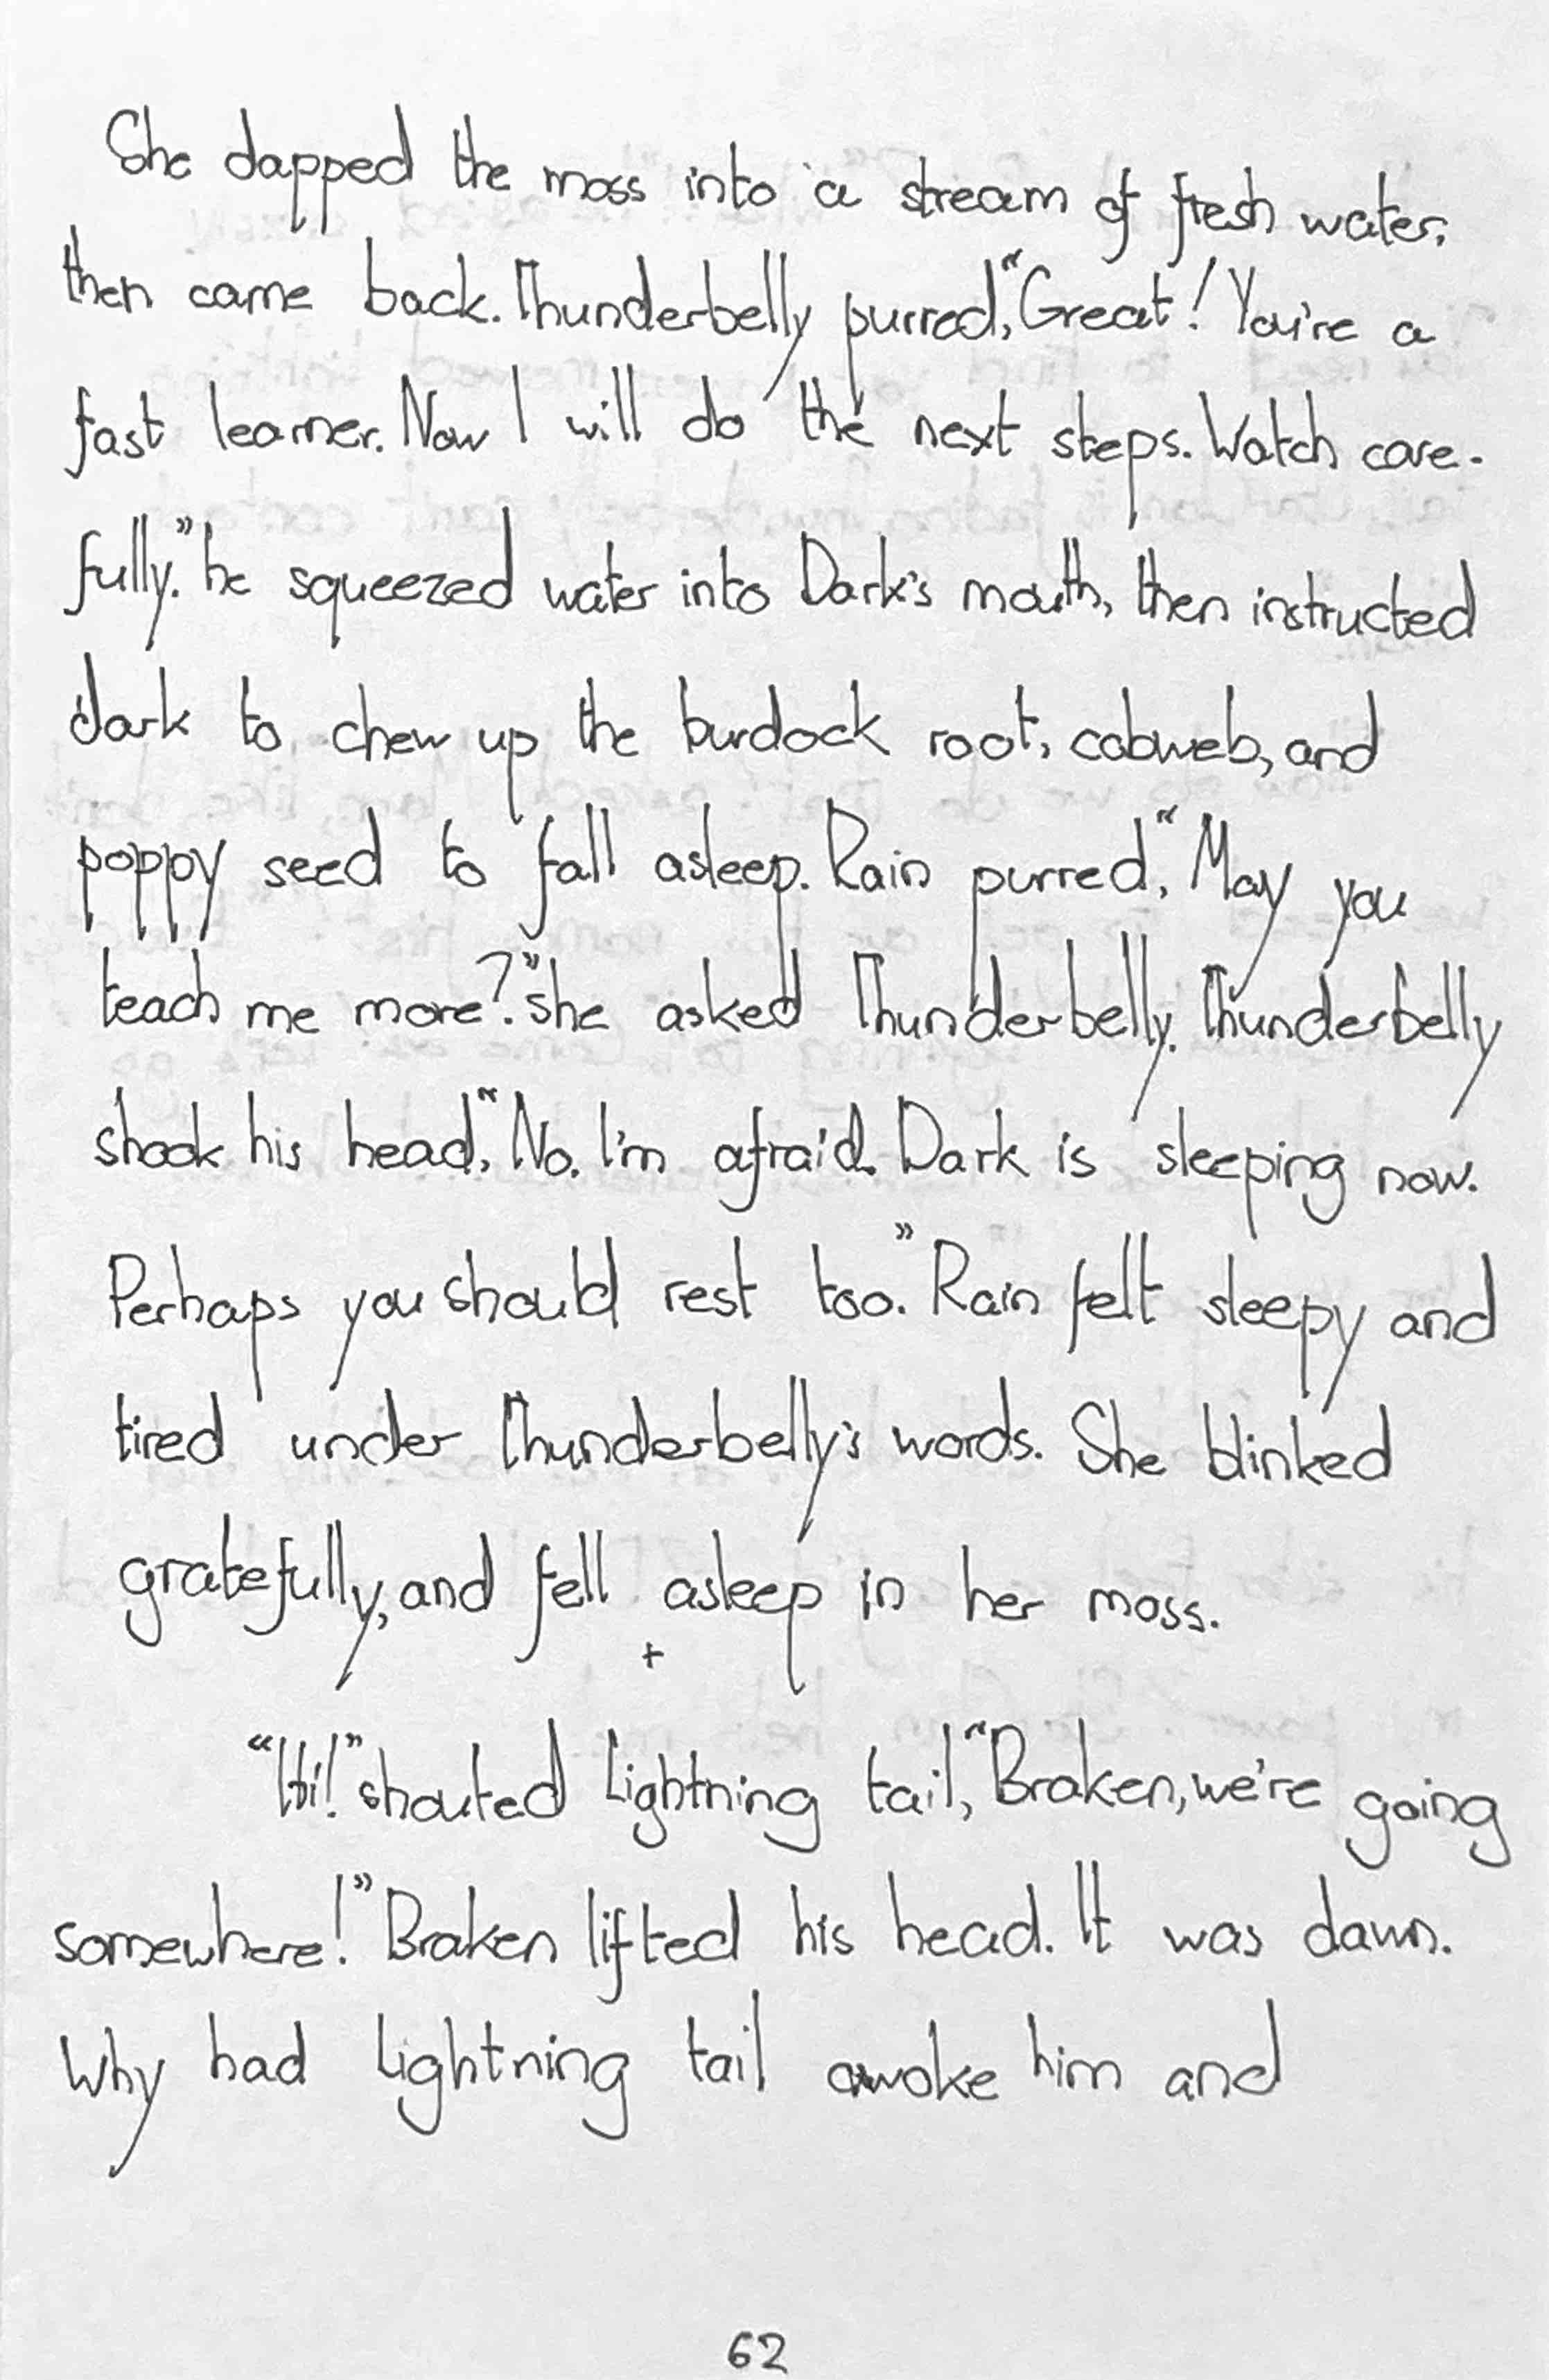 She dapped the moss into a stream of fresh water,
then came back. Thunderbelly purred, “Great! You're a
fast learner. Now I will do the next steps. Watch care-
fully.” he squeezed water into Dark's mouth, then instructed
dark to chew up the burdock root, cobweb, and
poppy seed to fall asleep. Rain purred, “May you
teach me more?” she asked Thunderbelly. Thunderbelly
shook his head, “No. I'm afraid. Dark is sleeping now.
Perhaps you should rest too.” Rain felt sleepy and
tired under Thunderbelly's words. She blinked
gratefully, and fell asleep in her moss.
+
“Hi!” shouted Lightning tail, “Braken, we're going
somewhere!” Braken lifted his head. It was dawn.
Why had Lightning tail awoke him and
62